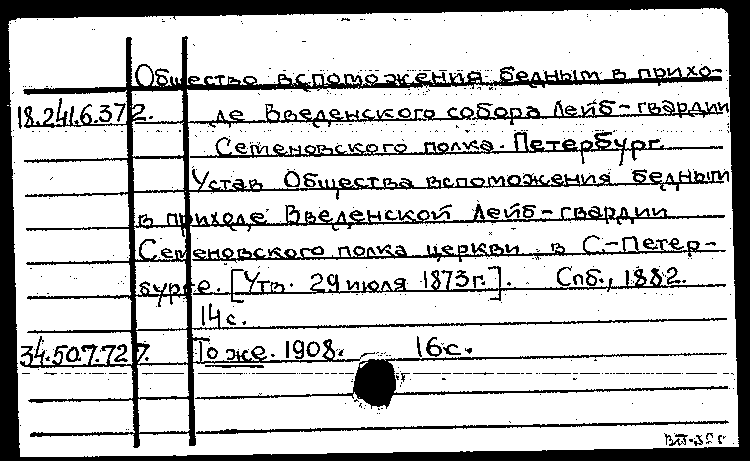 Общество вспоможения бедным в прихо-
18.241.6.372. де Введенского собора Лейб-гвардии
Семеновского полка. Петербург.
Устав Общества вспоможения бедным
в приходе Введенской Лейб-гвардии
Семеновского полка церкви в С.-Петер-
бурге. [Утв. 29 июля 1873г.]. Спб., 1882.
14с.
34.50.7.727. То же. 1908. 16с.